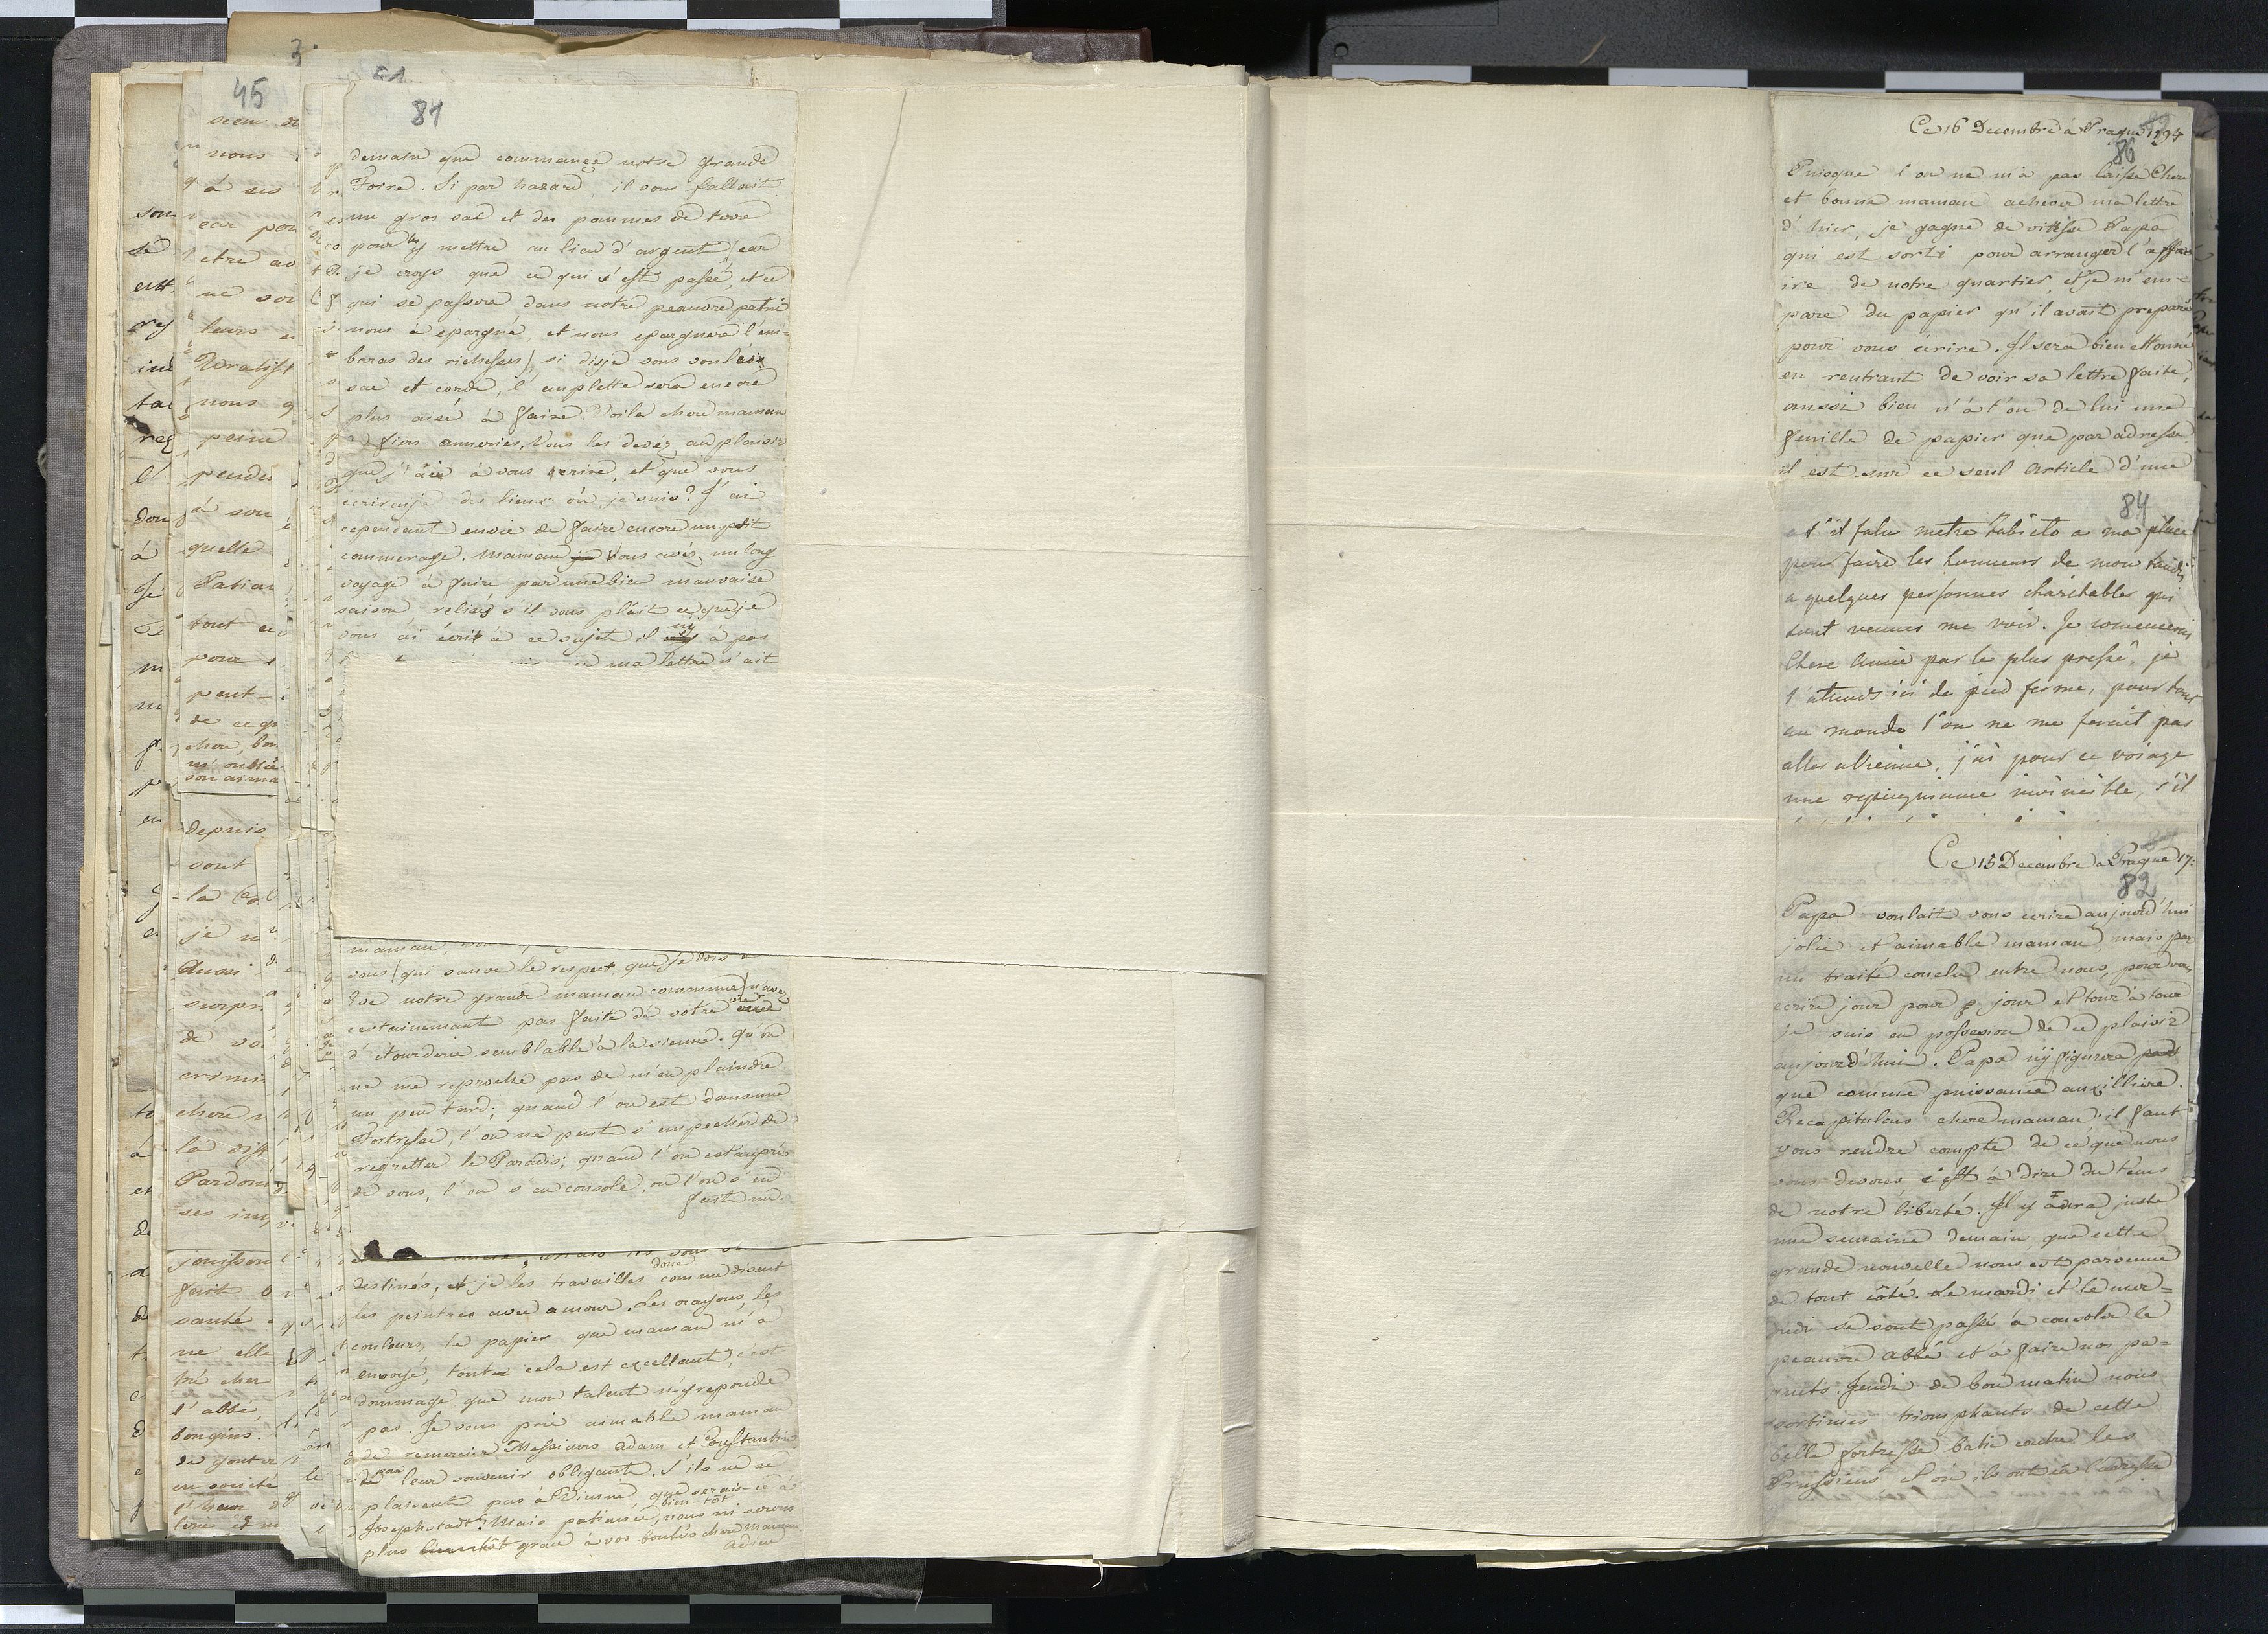 81
demain que commance notre grande
Foire. Si par hazard il vous fallait
un gros sac et des pommes de terre
pour les y mettre au lieu d'argent, car
je crois que ce qui s'est passé, et ce
qui se passera dans notre peauvre patrie
nous à epargné, et nous epargnera l'em=
baras des richesses) si disje vous voulés
sac et corde, l'emplette sera encore
plus aisé à faire. Voila chere maman
fiers anneries, Vous les devéz au plaisir
que j'ai à vous ecrire, et que vous
ecriraisje des lieux où je suis? J'ai
cependant envie de faire encore un petit
commerage. Maman Vous avés un long
voyage à faire par une bien mauvaise
saison relisés s'il vous plait ce que je
vous ai écrit à ce sujet il n'y à pas
ma lettre n'ait
maman,
vous (qui sauve le respect, que je dois à
Eve notre grande maman commune) n'avez
certainemant pas faite de votre vie
d'étourderie semblable à la sienne. Qu'on
ne me reproche pas de m'en plaindre
un peu tard; quand l'on est dans une
Fortresse, l'on ne peut s'empecher de
regretter le Paradis; quand l'on est auprès
de vous, l'on s'en console, ou l'on s'en
fait un.
destinés, et je les travailles donc comme disent
les peintres avec amour. Les crayons, les
couleurs, le papier que maman m'à
envoyé, toute cela est excellant, c'est
dommage que mon talent n'y reponde
pas. Je vous prie aimable maman
de remercier Messieurs Adam et Constantin
pour leur souvenir obligante. S'ils ne se
plaisent pas à Vienne, que serais-ce à
Josephstadt? Mais patience, nous ni serons bien-tôt
plus grace à vos bontés chere Maman
adieu
Ce 16 Decembre à Prague 1794
86
Puisque l'on ne m'à pas laisse Chere
et bonne maman achever ma lettre
d'hier, je gagne de vitesse Papa
qui est sorti pour arranger l'affa=
ire de notre quartier, et je m'em=
pare du papier qu'il avait preparé
pour vous écrire. Il sera bien ettonné
en rentrant de voir sa lettre faite,
aussi bien n'à t'on de lui une
feuille de papier que par adresse,
il est sur ce seul article d'une
84
at'il falu metre Babieto a ma place
pour faire les honneurs de mon taudis
a quelques personnes charitables qui
sont venues me voir. Je comencerai
Chere Amie par le plus pressé, je
t'attends ici de pied ferme, pour tout
au monde l'on ne me ferait pas
aller a Vienne, j'ai pour ce voiage
une repugnance invincible, s'il
Ce 15 Decembre à Prague 17:
82
Papa voulait vous ecrire aujourd'hui
jolie et aimable maman, mais par
un traité conclu entre nous, pour vous
ecrire jour pour jour et tour à tour
je suis en possession de ce plaisir
aujourd'hui. Papa n'y figurera
que comme puissance auxilliaire.
Recapitulons chere maman; il faut
vous rendre compte de ce que nous
vous devons c'est à dire du tems
de notre liberté. Il y aura juste
une semaine demain, que cette
grande nouvelle nous est parvenue
de tout côté. Le mardi et le mer=
credi se sont passé à consoler le
peauvre abbé et à faire nos pa=
quets. Jeudi de bon matin nous
sortimes triomphants de cette
belle fortresse batie contre les
Prussiens et où ils ont eû l'adresse
45
nous
à ses
etre
ne
leurs
nous
peine
à son
quelle
tout
pour
peut
depuis
sont
je
Aussi
de
chere
la
Pardon
ses
fait
santé
ne elle
l'abbé,
de gouter
en société